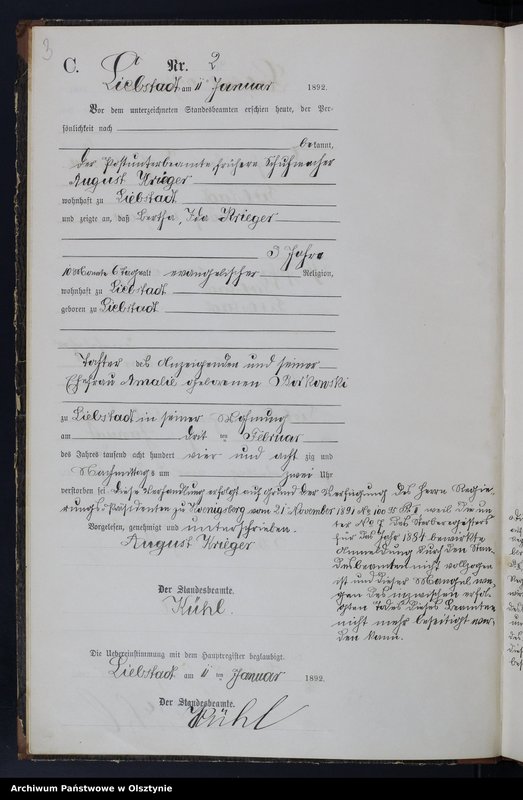 3
C. Nr. 2
Liebstadt am 11 Januar 1892.
Vor dem unterzeichneten Standesbeamten erschien heute, der Per-
sönlichkeit nach
bekannt,
der Postunterbeamte, frühere Schuhmacher
August Krieger
wohnhaft zu Liebstadt
und zeigte an, daß Bertha, Ida Krieger
3 Jahre
10 Monate 6 Tage alt evangelischer Religion,
wohnhaft zu Liebstadt
geboren zu Liebstadt
Tochter des Anzeigenden und seiner
Ehefrau Amalie geborenen
zu Liebstadt in seiner Wohnung
am drit ten Februar
des Jahres tausend acht hundert vier und acht zig und
Nachmittags um zwei Uhr
verstorben sei. Diese Verhandlung erfolgt auf Grund der Verfügung des Herrn Regie-
rungs-Präsidenten zu Koenigsberg vom 21 November 1891 weil die un-
Vorgelesen, genehmigt und unterschrieben.
August Krieger
ter No 7 des Sterberegisters
für das Jahr 1884 bewirkte
Anmeldung durch den Stan-
desbeamten nicht vollzogen
ist und dieser Mangel we-
gen des inzwischen erfol-
gten Todes dieses Beamten
nicht mehr beseitigt wer-
den kann.
Der Standesbeamte.
Kühl.
Die Uebereinstimmung mit dem Hauptregister beglaubigt.
Liebstadt am 11 ten Januar 1892.
Der Standesbeamte.
Kühl
Archiwum Państwowe w Olsztynie